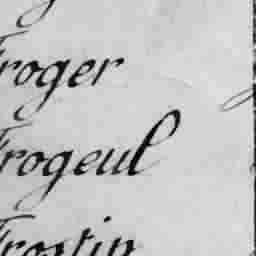 Froger
Frogeul
Frostin